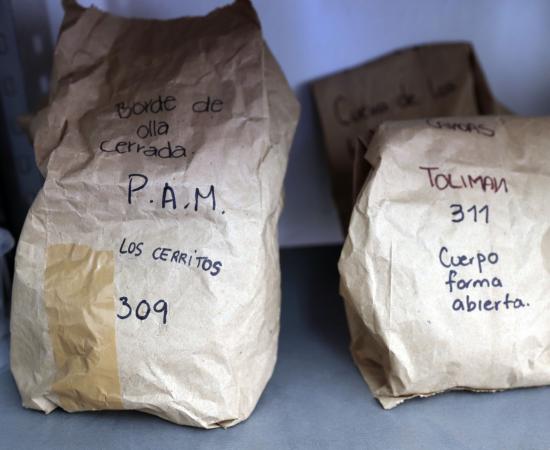 Borde de
olla
cerrada.
P.A.M.
LOS CERRITOS
309
Cueva de
TOLIMAN
311
Cuerpo
forma
abierta.